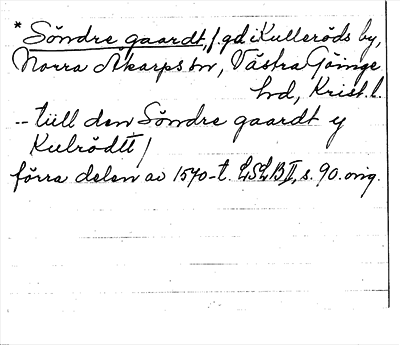 * Söndre gaardt, f. gd i Kulleröds by,
Norra Åkarps sn, Västra Göinge
hrd, Krist. l.
-- tiill den Söndre gaardt y
Kulrödtt /
förra delen av 1570-t. LSLB II, s. 90. orig.